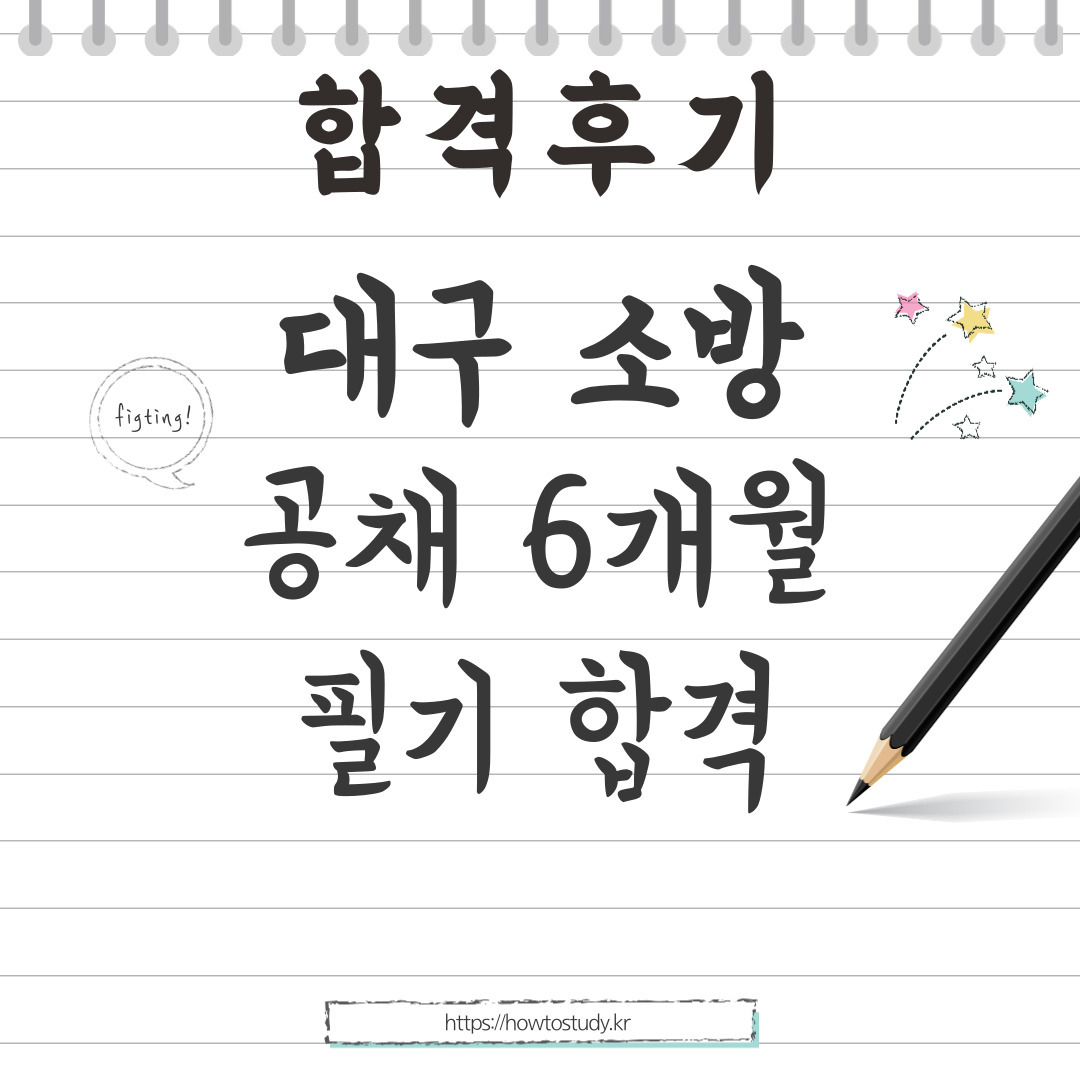 합격후기
대구 소방
figting!
공채 6개월
필기 합격
https://howtostudy.kr